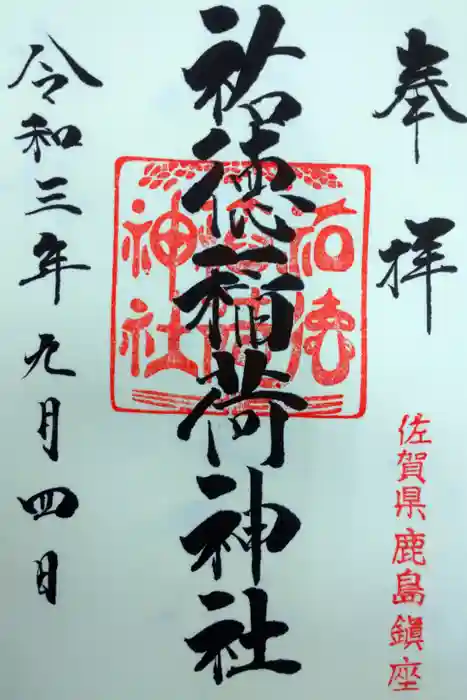 奉拝
佐賀県鹿島鎮座
祐徳稲荷神社
祐徳
稲荷
神社
令和三年九月四日